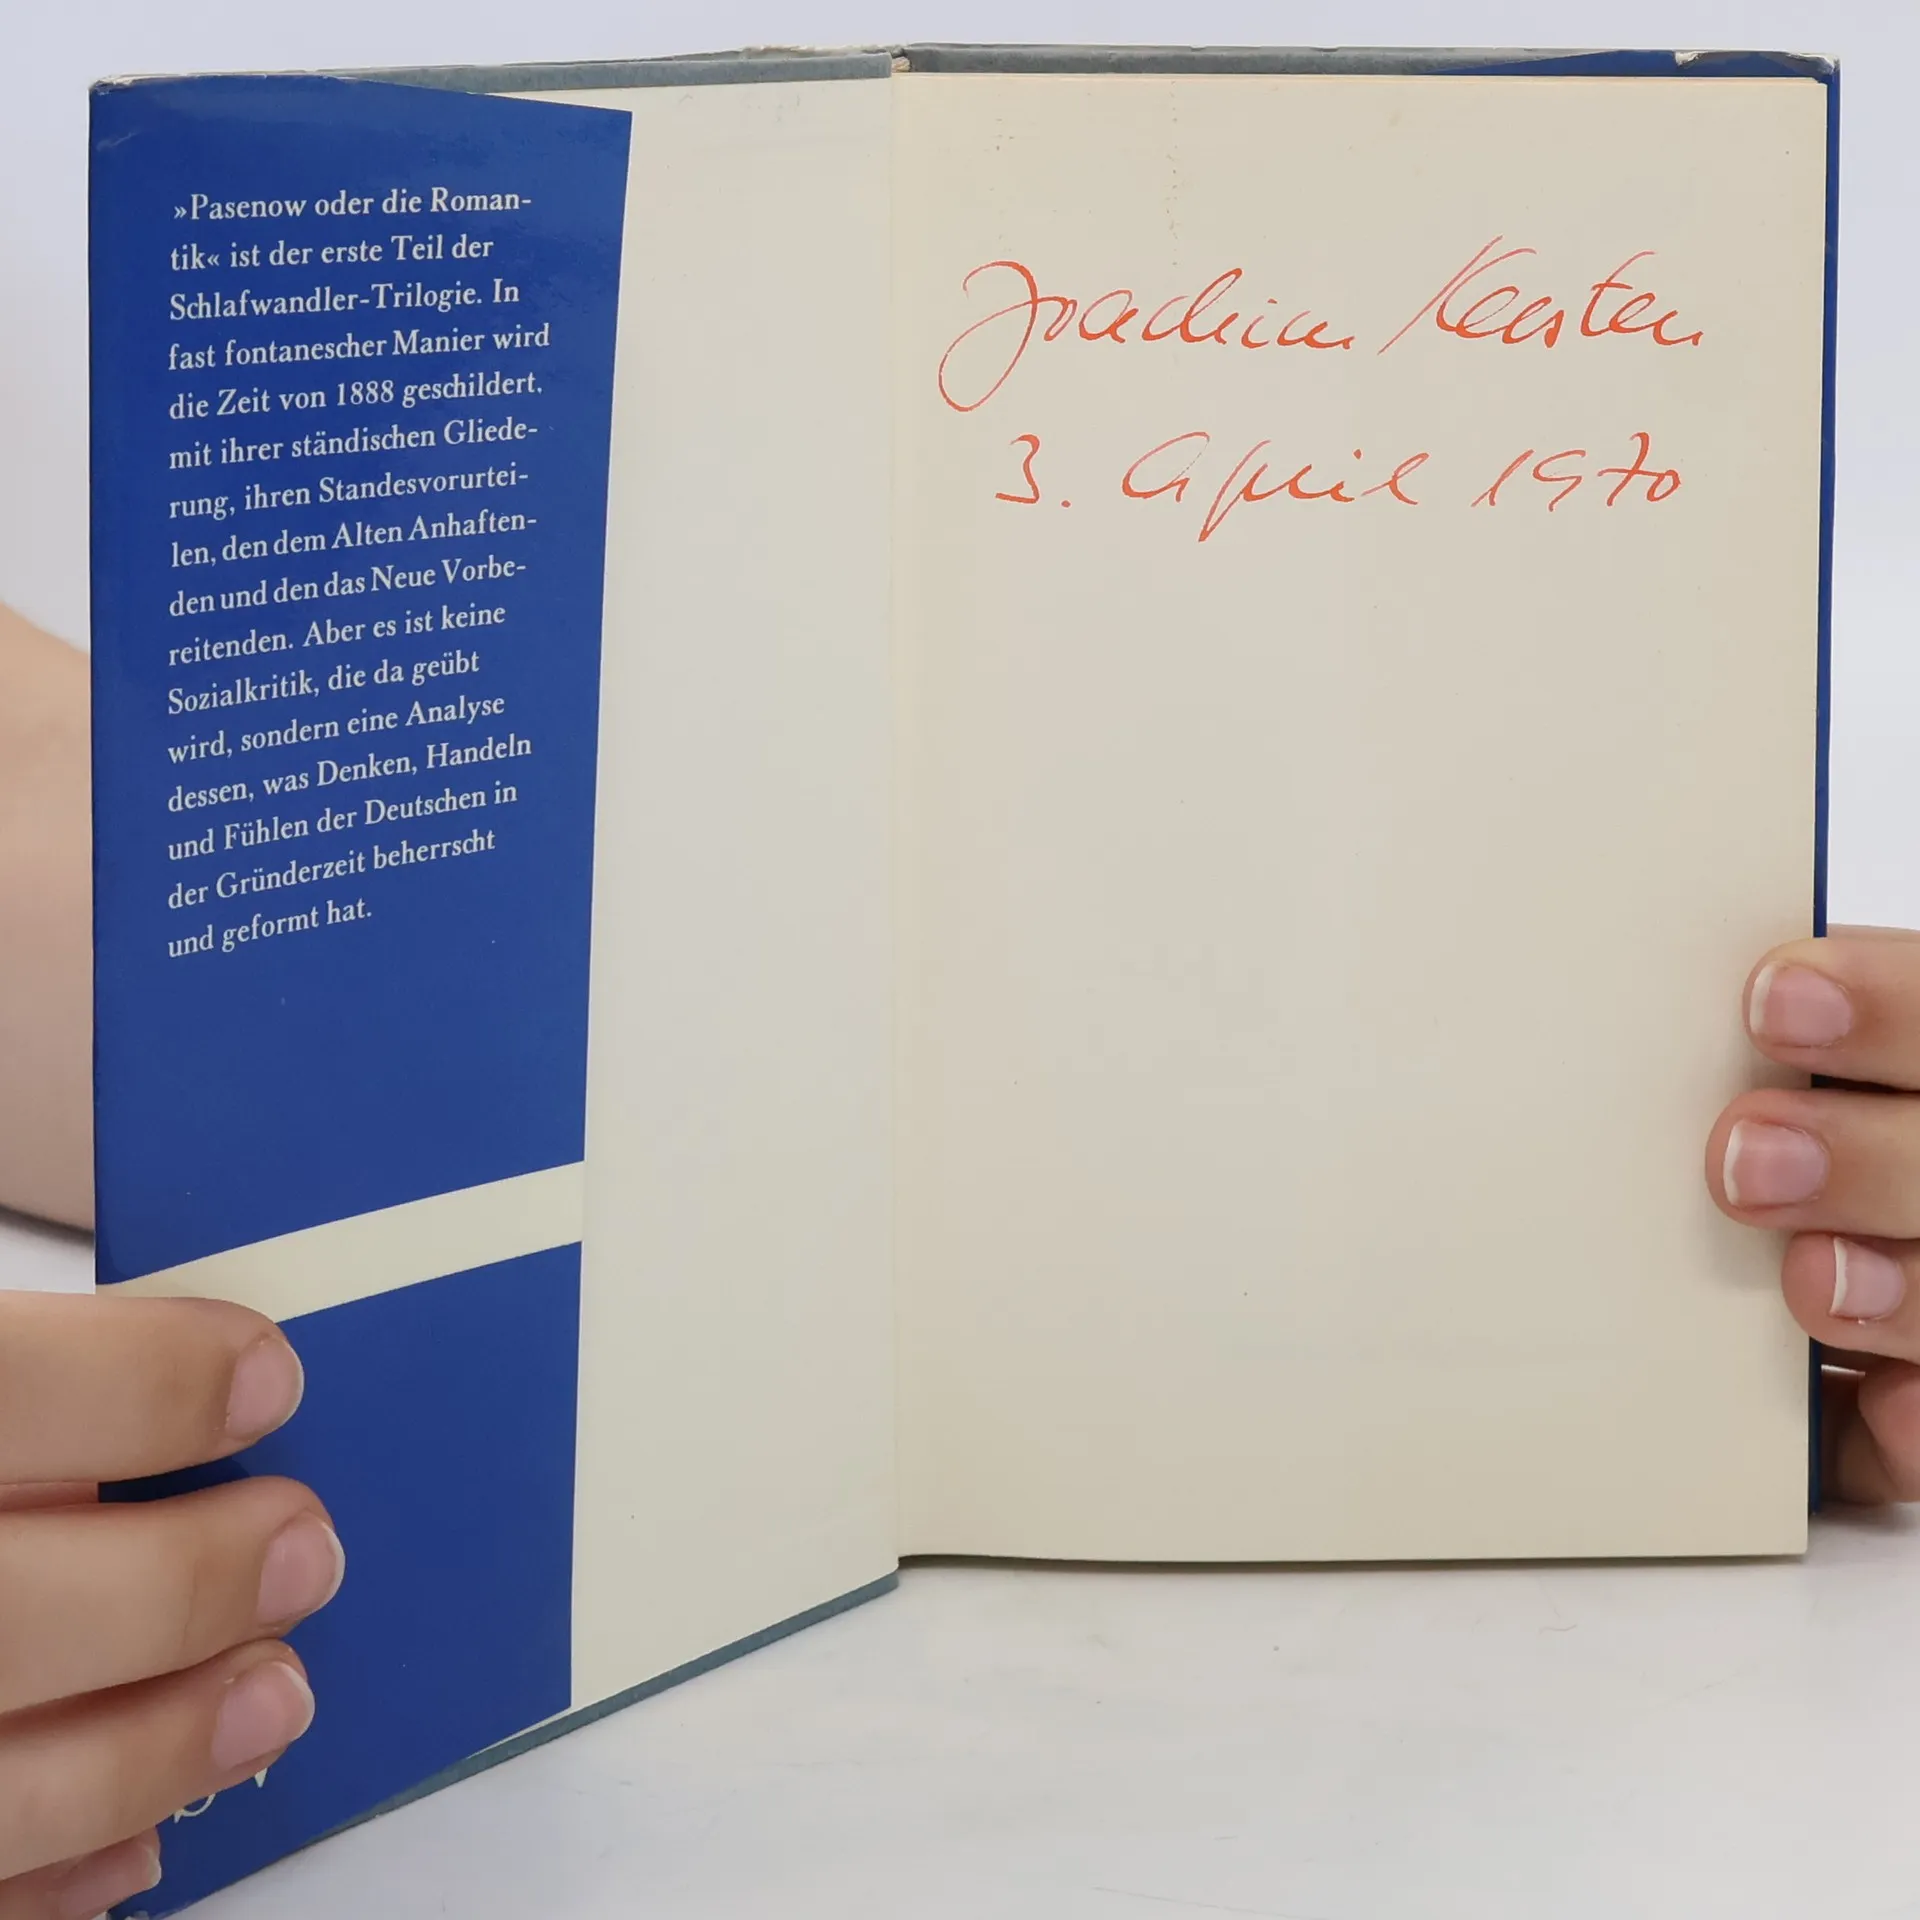 »Pasenow oder die Roman-
tik« ist der erste Teil der
Schlafwandler-Trilogie. In
fast fontanescher Manier wird
die Zeit von 1888 geschildert,
mit ihrer ständischen Gliede-
rung, ihren Standesvorurtei-
len, den dem Alten Anhaften-
den und den das Neue Vorbe-
reitenden. Aber es ist keine
Sozialkritik, die da geübt
wird, sondern eine Analyse
dessen, was Denken, Handeln
und Fühlen der Deutschen in
der Gründerzeit beherrscht
und geformt hat.
Joachim Kersten
3. April 1970